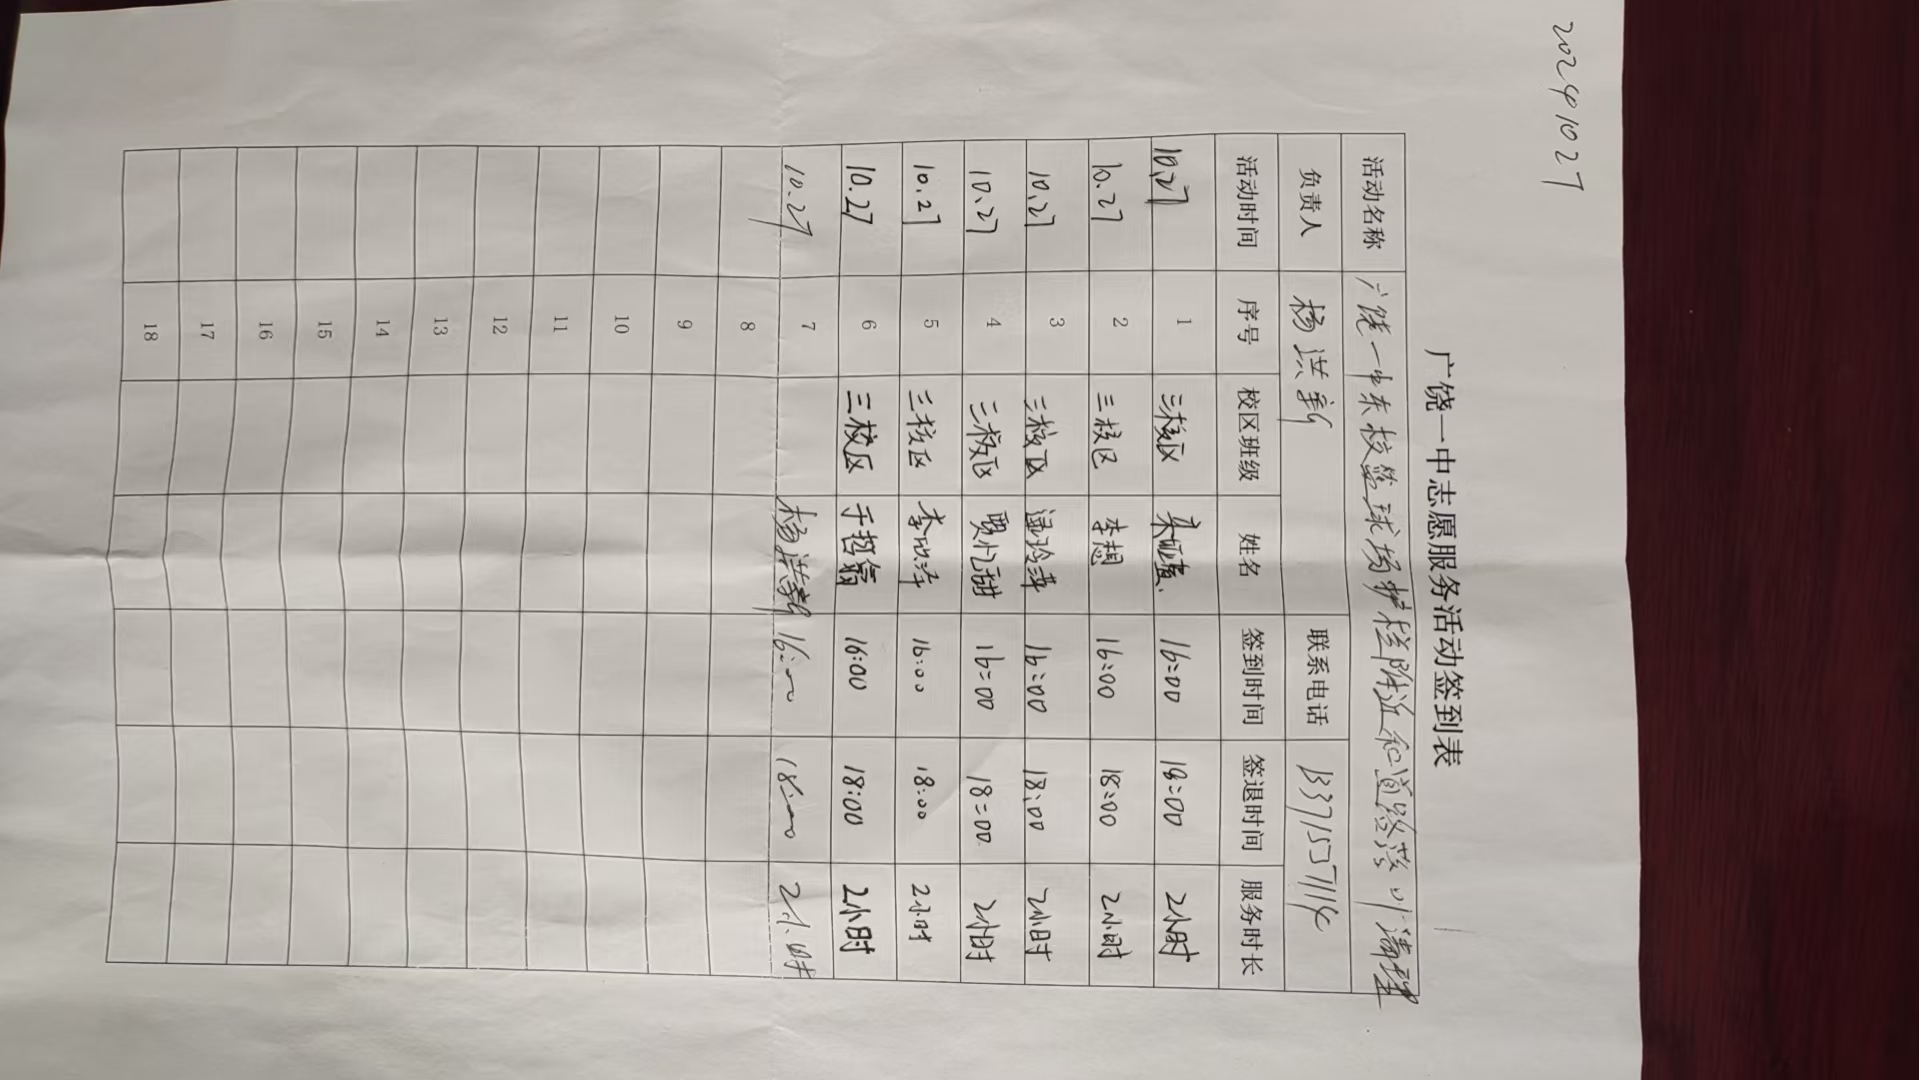 20241027
广饶一中志愿服务活动签到表
活动名称 广饶一中东校篮球场护栏附近和道路落叶清理
负责人 杨洪新 联系电话 13371557114
活动时间 序号 校区班级 姓名 签到时间 签退时间 服务时长
10.27 1 三校区 16:00 18:00 2小时
10.27 2 三校区 李想 16:00 18:00 2小时
10.27 3 三校区 16:00 18:00 2小时
10.27 4 三校区 贾忆甜 16:00 18:00 2小时
10.27 5 三校区 李欣泽 16:00 18:00 2小时
10.27 6 三校区 于哲翕 16:00 18:00 2小时
10.27 7 杨洪新 16:00 18:00 2小时
8
9
10
11
12
13
14
15
16
17
18